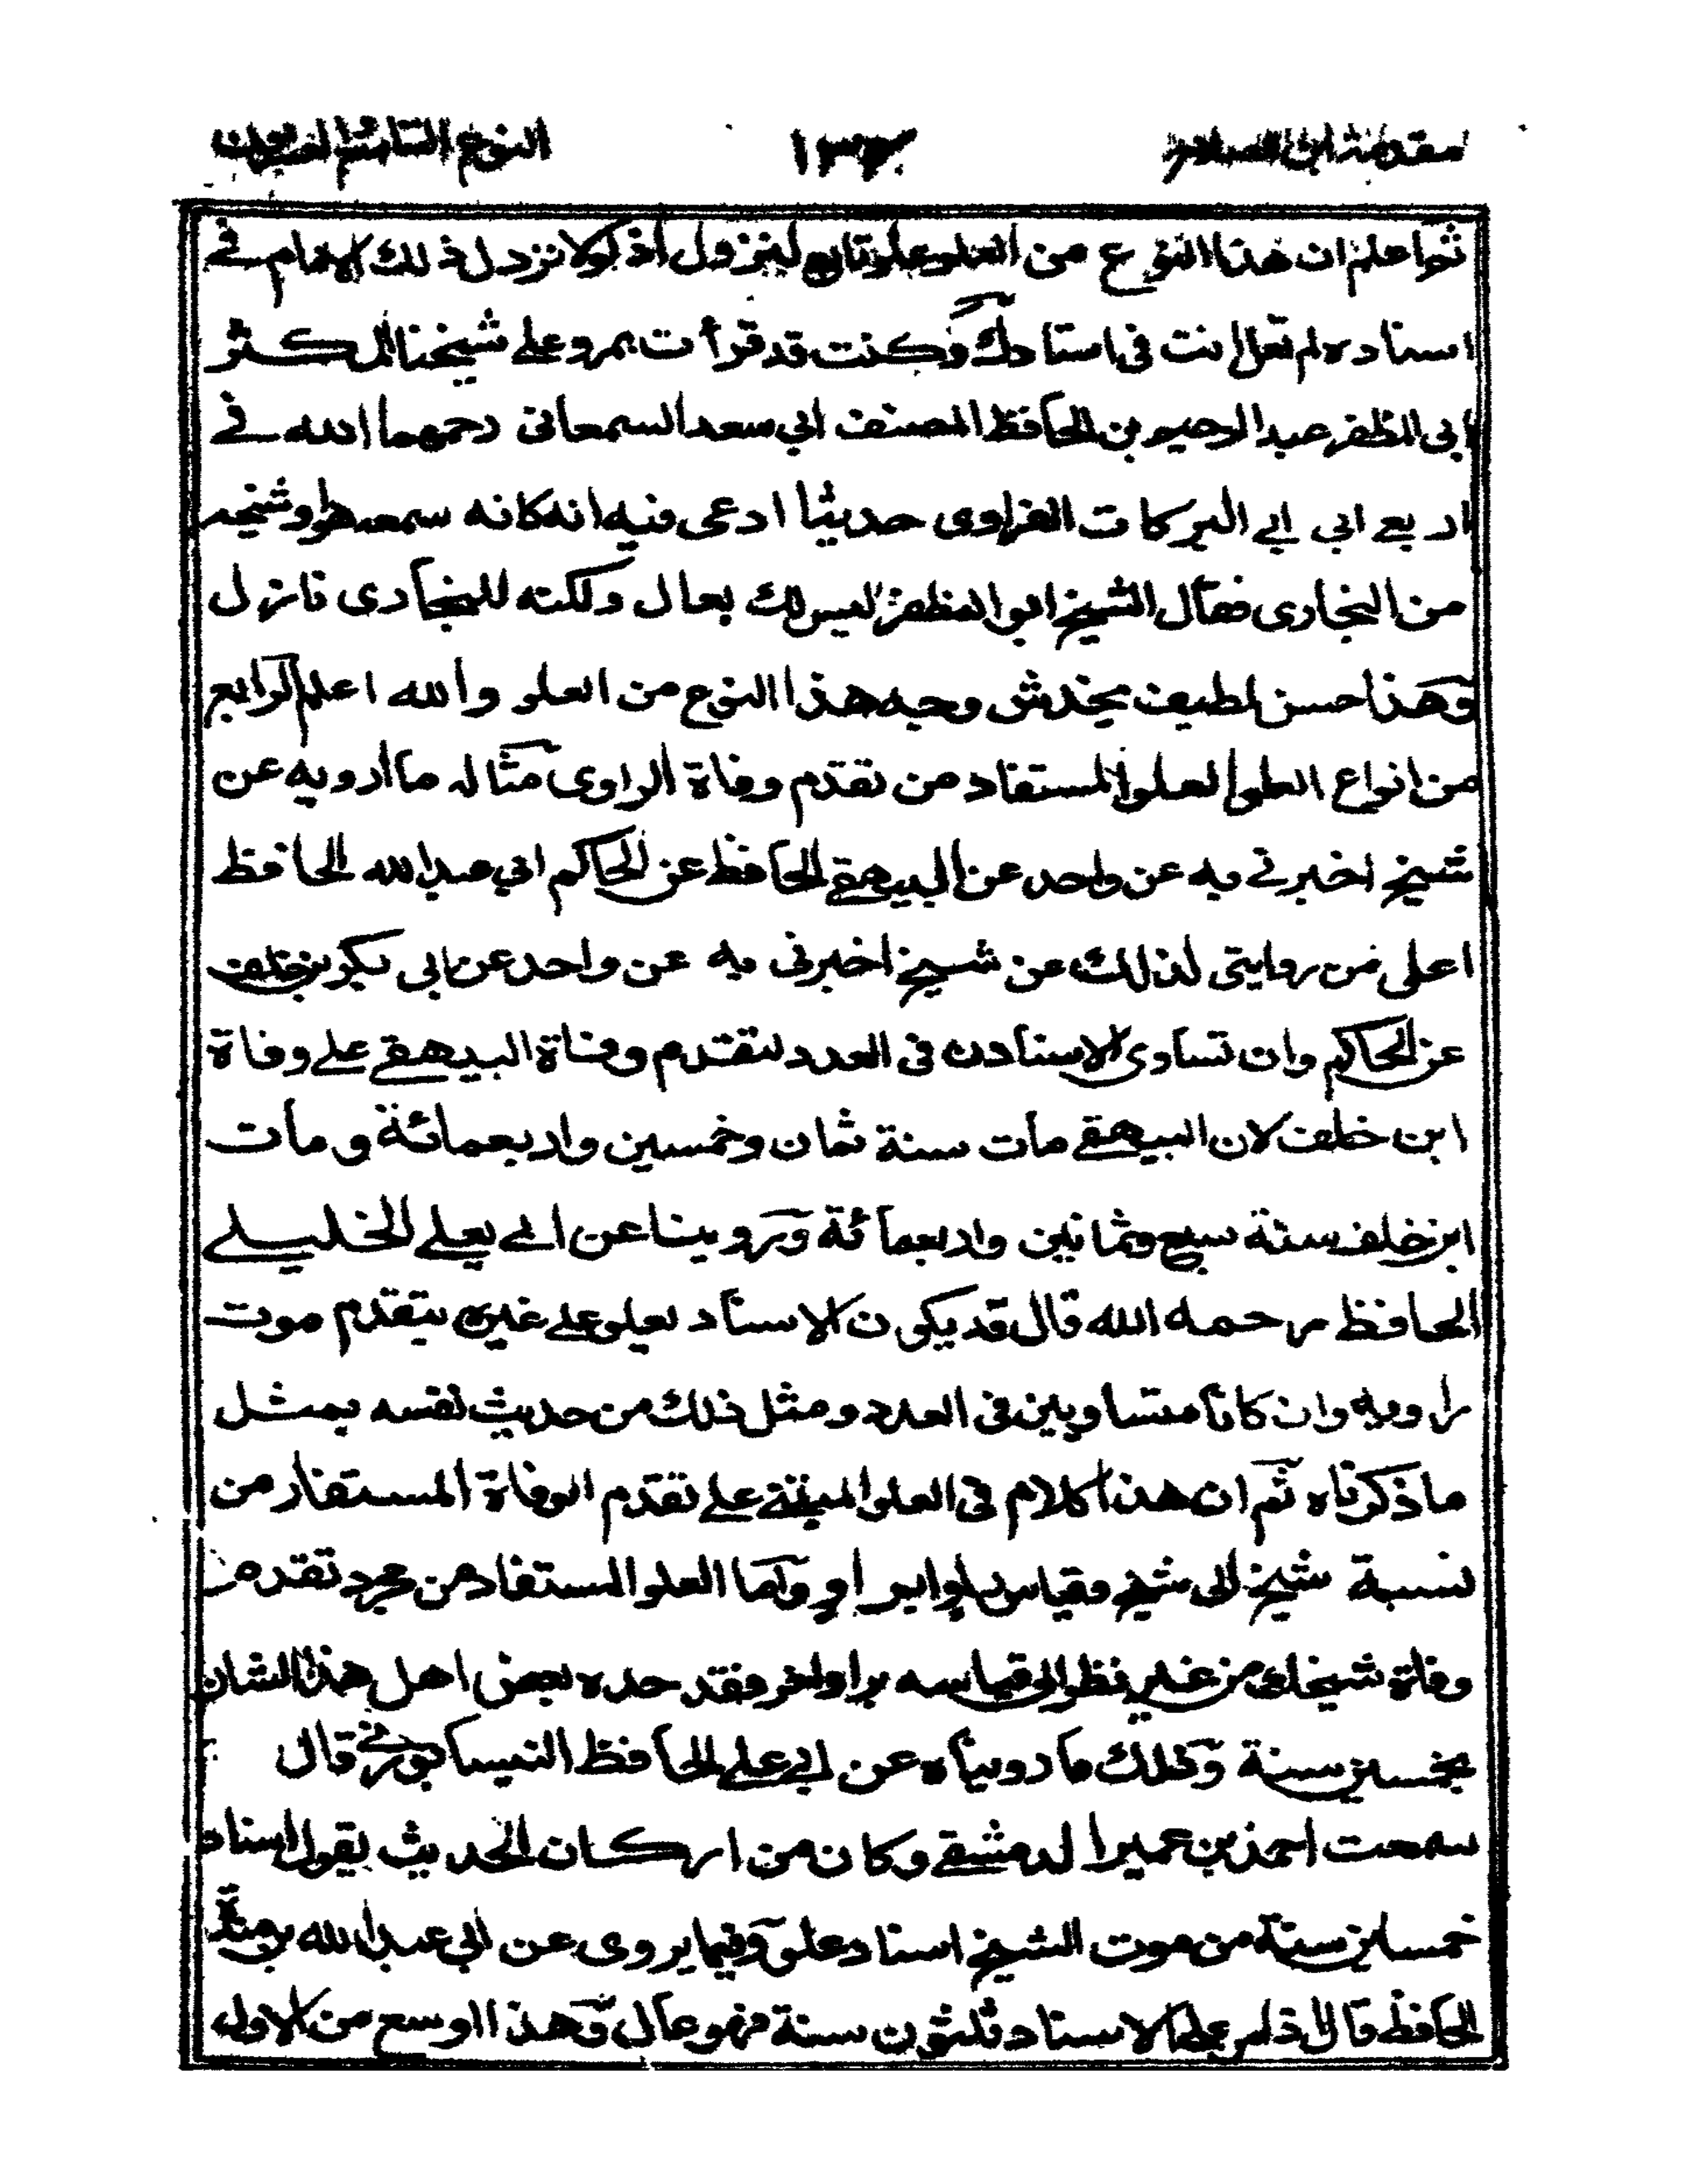 مقدمة ابن الصلاح ١٣٢ النوع التاسع والعشرون
ثم اعلم ان هذا النوع من العلو علو تابع لنزول اذ لولا نزول ذلك الامام في
اسناده لم تعل انت في اسنادك وكنت قد قرأت بمرو على شيخنا المكثر
ابى المظفر عبد الرحيم بن الحافظ المصنف ابي سعد السمعانى رحمهما الله في
اربعي ابى البركات الفراوى حديثا ادعى فيه انه كانه سمعه هو او شيخه
من البخارى فقال الشيخ ابو المظفر ليس لك بعال ولكنه للبخارى نازل
وهذا حسن لطيف يخدش وجه هذا النوع من العلو والله اعلم الرابع
من انواع العلو العلو المستفاد من تقدم وفاة الراوى مثاله ما ارويه عن
شيخ اخبرنى به عن واحد عن البيهقي الحافظ عن الحاكم ابي عبد الله الحافظ
اعلى من روايتى لذلك عن شيخ اخبرنى به عن واحد عن ابى بكر بن خلف
عن الحاكم وان تساوى الاسنادان فى العدد لتقدم وفاة البيهقي على وفاة
ابن خلف لان البيهقي مات سنة ثمان وخمسين واربعمائة ومات
ابن خلف سنة سبع وثمانين واربعمائة وروينا عن ابي يعلي الخليلي
الحافظ رحمه الله قال قد يكون الاسناد يعلو على غيره بتقدم موت
راويه وان كانا متساويين فى العدد ومثل ذلك من حديث نفسه بمثل
ما ذكرناه ثم ان هذا كلام فى العلو المبتني علي تقدم الوفاة المستفاد من
نسبة شيخ الى شيخ وقياس راو براو واما العلو المستفاد من مجرد تقدم
وفاة شيخك من غير نظر الى قياسه براو اخر فقد حده بعض اهل هذا الشان
بخمسين سنة وذلك ما رويناه عن ابي علي الحافظ النيسابوري قال
سمعت احمد بن عمير الدمشقي وكان من اركان الحديث يقول اسناد
خمسين سنة من موت الشيخ اسناد علو وفيما يروى عن ابي عبد الله بن مندة
الحافظ قال اذا مر على الاسناد ثلثون سنة فهو عال وهذا اوسع من الاول